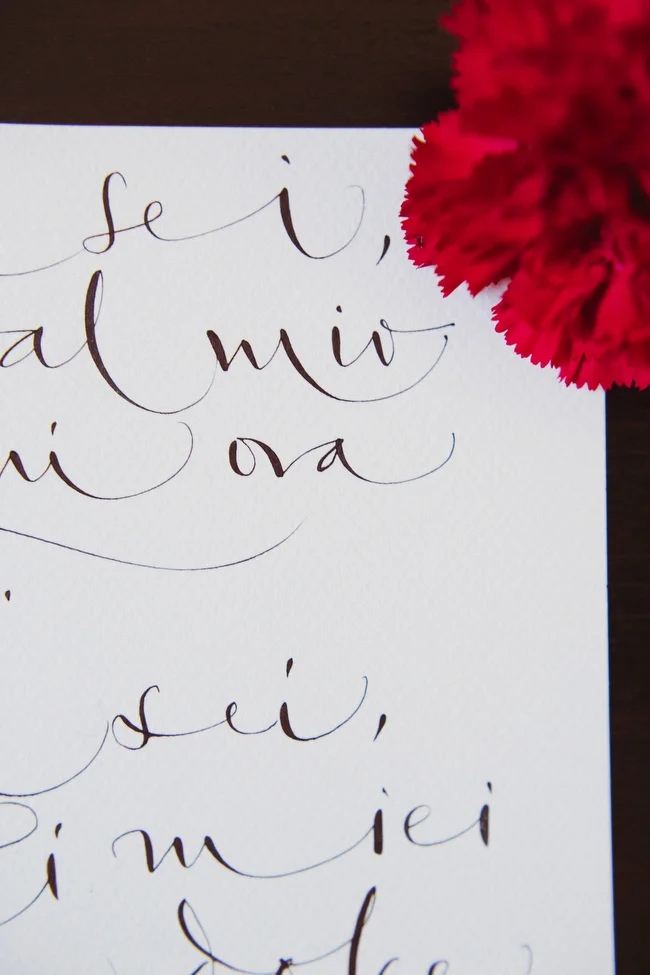 sei,
al mio
ni ora
sei,
i miei
dolce